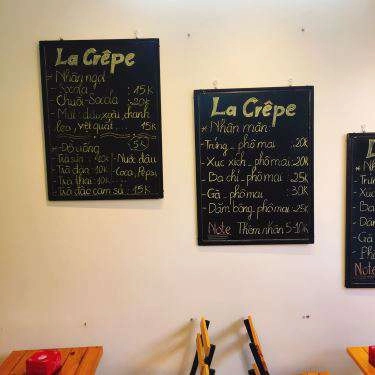 La Crêpe
* Nhân ngọt
- Socola : 15K
- Chuối - Socola : 20K
- Mứt dâu, xoài, chanh
leo, việt quất... 15K
* Đồ uống 5K
- Trà sữa : 20K - Nước dâu
- Trà đào : 10K Coca, Pepsi
- Trà thái : 10K
- Trà đác cam sả : 15K
La Crêpe
* Nhân mặn
- Trứng _ phô mai : 20K
- Xúc xích _ phô mai : 20K
- Ba chỉ _ phô mai : 25K
- Gà _ phô mai : 30K
- Dăm bông _ phô mai : 25K
Note Thêm nhân 5-10K
Note